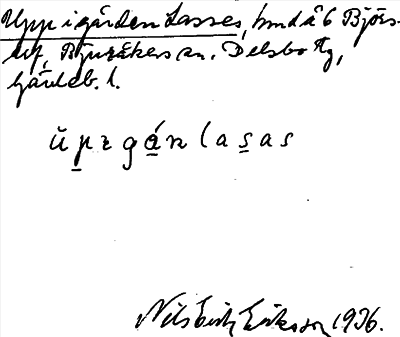 Upp i gården Lasses, hmd å 6 Björs-
arf, Bjuråkers sn. Delsbo tg,
Gävleb. l.
ŭpɛgánlasas
Nils Erik Eriksson 1936.